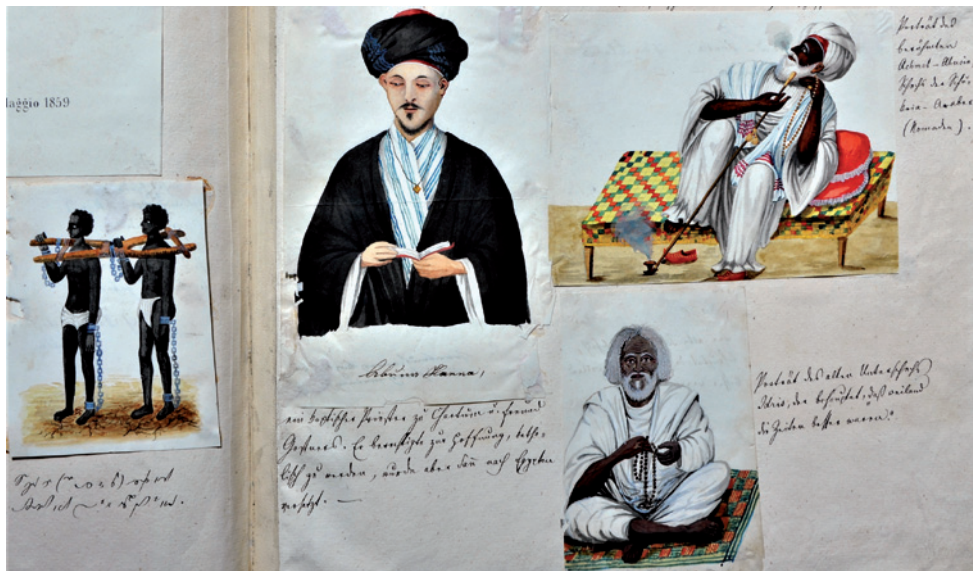 laggio 1859
Abuna Hanna,
ein koptischer Priester zu Chartum u. Freund
Gostners. Er berechtigte zur Hoffnung, katho-
lisch zu werden, wurde aber dann nach Egypten
versetzt. —
Porträt des
berühmten
Achmet-Abusin,
Schechs der Schu-
kria-Araber
(Nomaden).
Porträt des alten Unterschechs
Idris, der behauptet, daß weiland
die Zeiten besser waren.